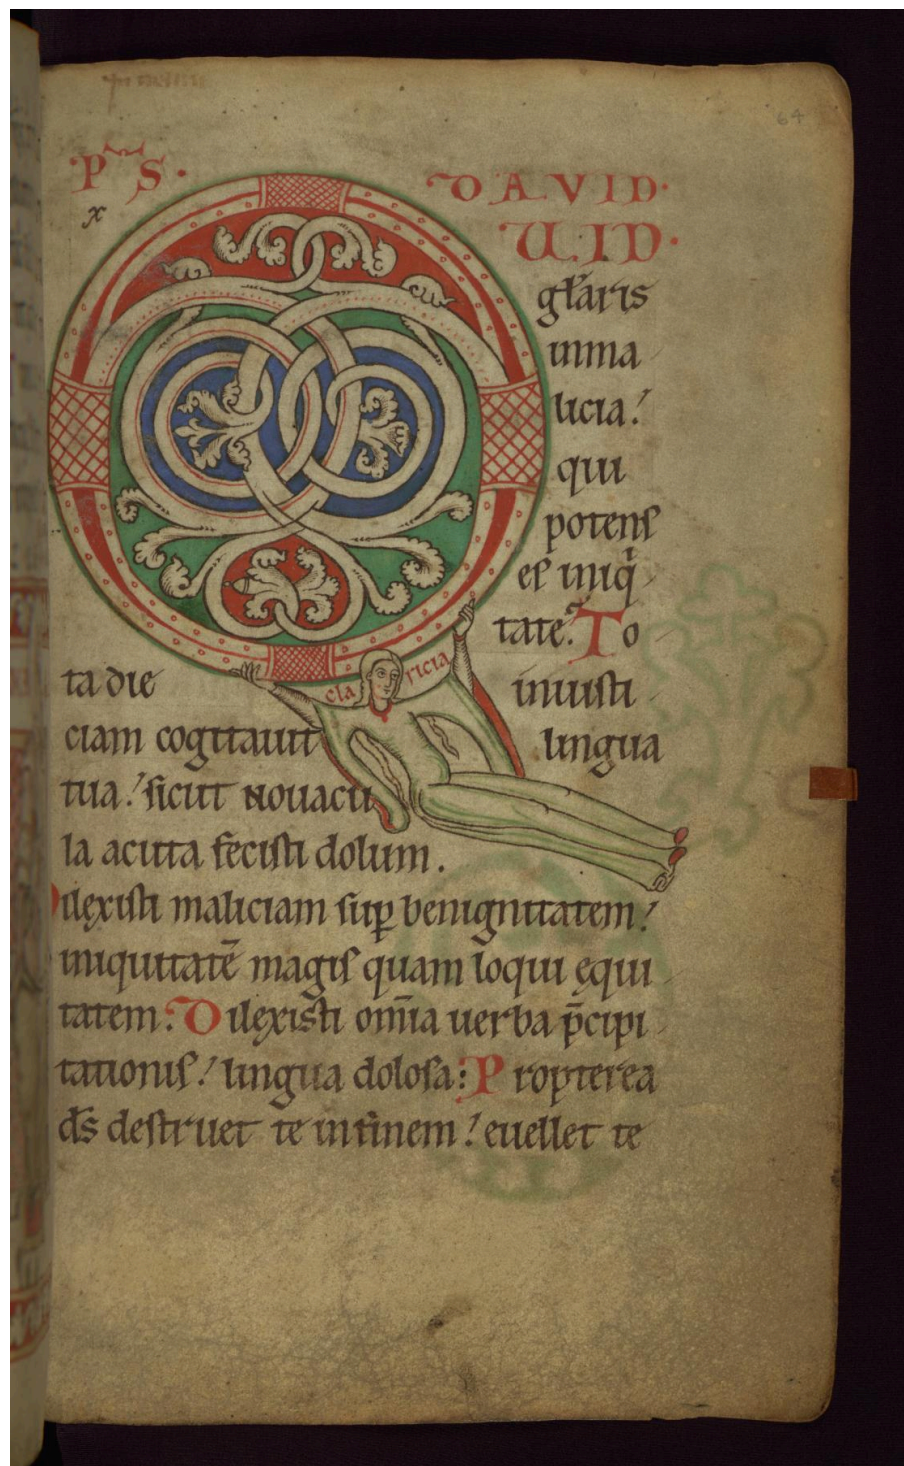 P̃S· DAVID·
x
64
QUID·
gl̃aris
inma
licia!
qui
potens
es iniq̇
tate. To
claricia
ta die inuisti
ciam cogitauit lingua
tua! sicut nouacu
la acuta fecisti dolum.
Dilexisti maliciam suꝑ benignitatem!
iniquitatē magis quam loqui ęqui
tatem. Dilexisti om̄ia uerba p̄cipi
tationis! lingua dolosa: Propterea
d̄s destruet te infinem! euellet te